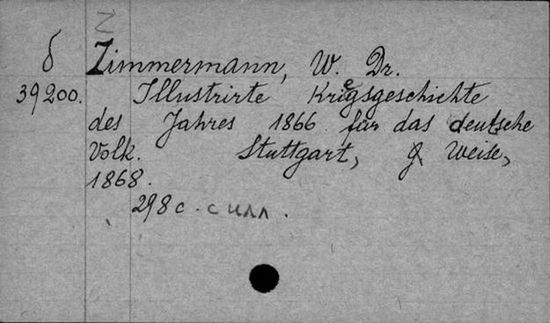 Z
δ Zimmermann, W. Dr.
39200. Illustrirte Kriegsgeschichte
des Jahres 1866 für das deutsche
Volk. Stuttgart, G. Weise,
1868.
298 с. с илл.